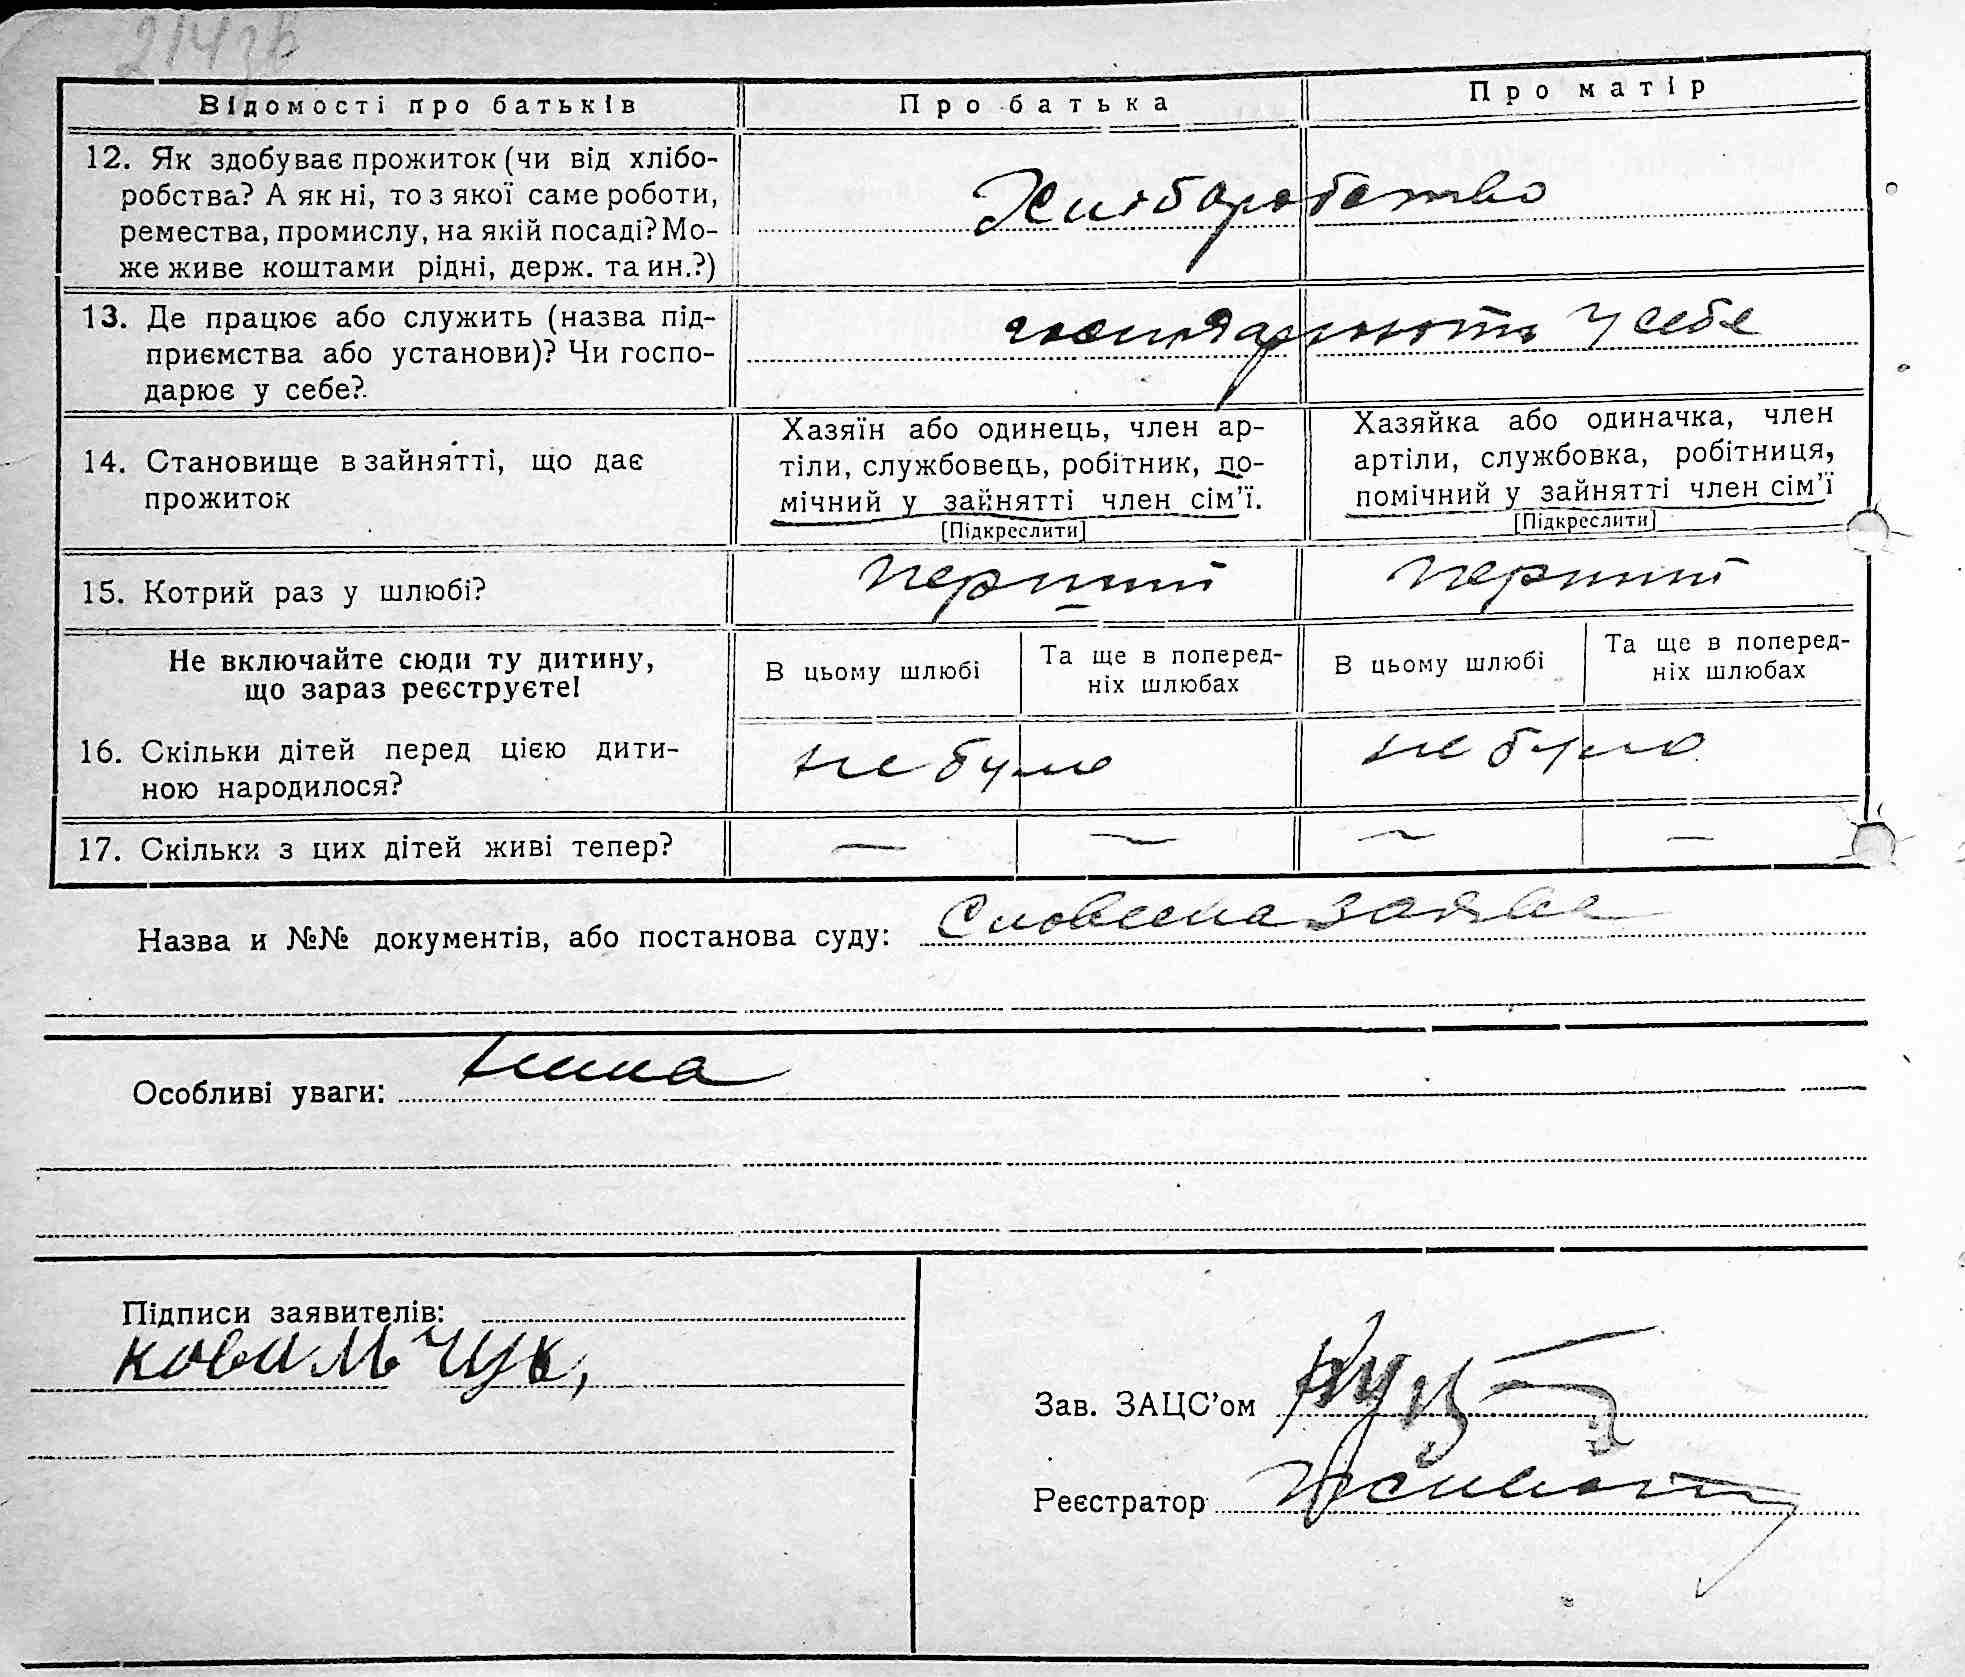 214зв
Відомості про батьків Про батька Про матір
12. Як здобуває прожиток (чи від хлібо-
робства? А як ні, то з якої саме роботи,
ремества, промислу, на якій посаді? Мо-
же живе коштами рідні, держ. та ин.?)
Хліборобство
13. Де працює або служить (назва під-
приємства або установи)? Чи госпо-
дарює у себе?
господарюють у себе
14. Становище в зайнятті, що дає
прожиток
Хазяїн або одинець, член ар-
тіли, службовець, робітник, по-
мічний у зайнятті член сім'ї.
[Підкреслити]
Хазяйка або одиначка, член
артіли, службовка, робітниця,
помічний у зайнятті член сім'ї
[Підкреслити]
15. Котрий раз у шлюбі? перший перший
Не включайте сюди ту дитину,
що зараз реєструєте!
В цьому шлюбі
Та ще в поперед-
ніх шлюбах
В цьому шлюбі
Та ще в поперед-
ніх шлюбах
16. Скільки дітей перед цією дити-
ною народилося?
не було не було
17. Скільки з цих дітей живі тепер? — — — —
Назва и №№ документів, або постанова суду: Словесна заява
Особливі уваги: нема
Підписи заявителів:
ковальчук,
Зав. ЗАЦС'ом
Реєстратор